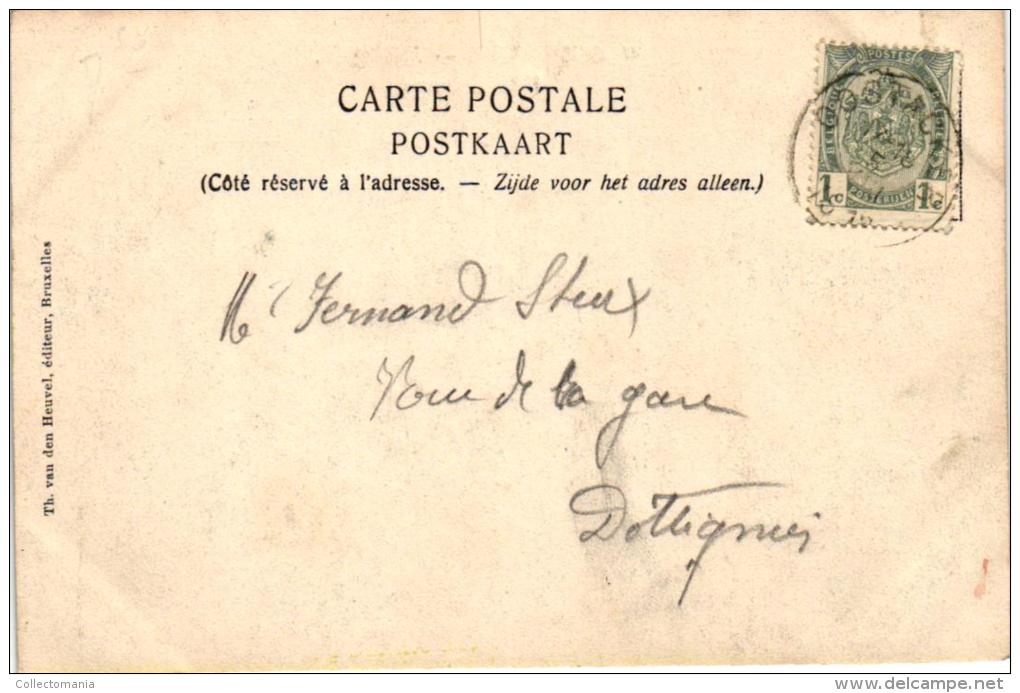 CARTE POSTALE
POSTKAART
(Côté réservé à l'adresse. — Zijde voor het adres alleen.)
POSTES
BELGIQUE
1c 1c
POSTERIJEN
Th. van den Heuvel, éditeur, Bruxelles
Mr Fernand Steux
Rue de la gare
Dottignies
Collectomania
www.delcampe.net